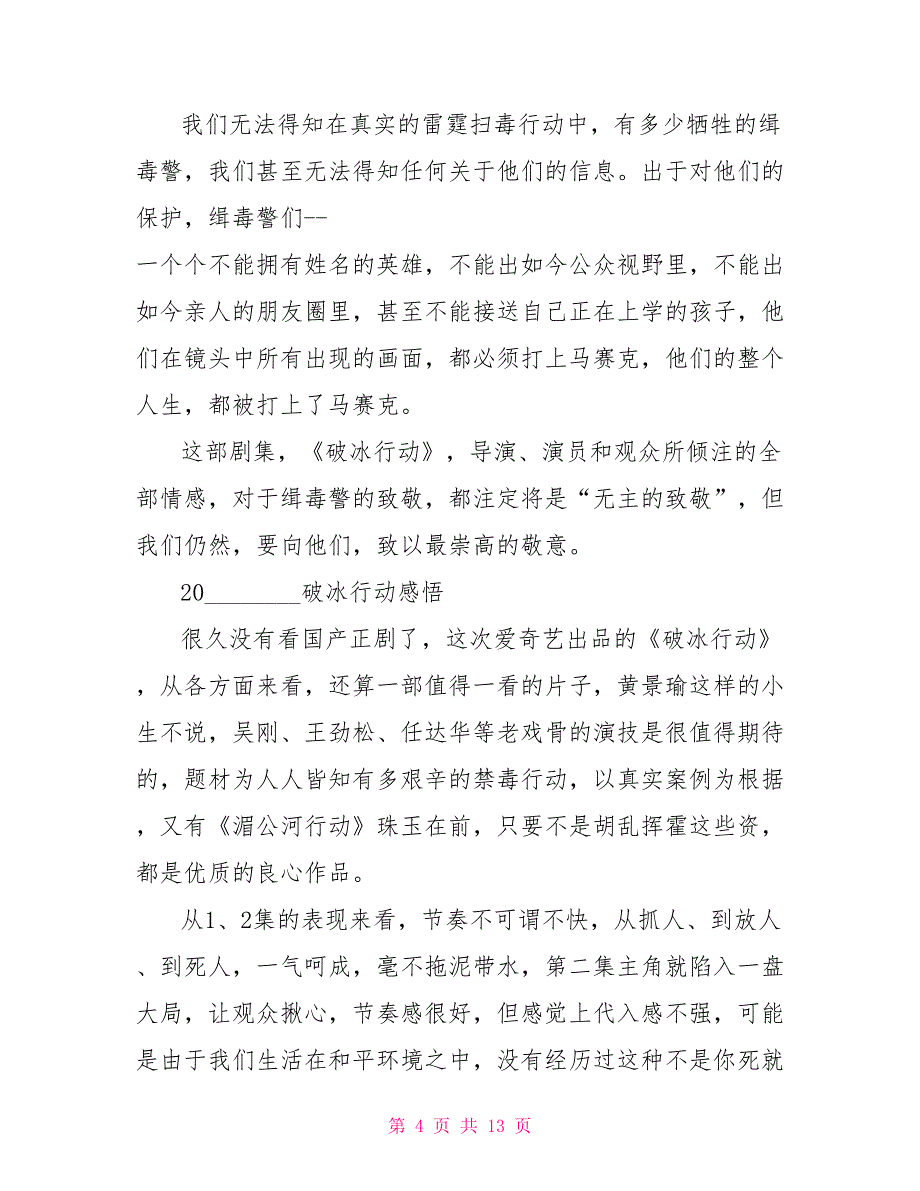 我们无法得知在真实的雷霆扫毒行动中，有多少牺牲的缉
毒警，我们甚至无法得知任何关于他们的信息。出于对他们的
保护，缉毒警们--
一个个不能拥有姓名的英雄，不能出如今公众视野里，不能出
如今亲人的朋友圈里，甚至不能接送自己正在上学的孩子，他
们在镜头中所有出现的画面，都必须打上马赛克，他们的整个
人生，都被打上了马赛克。
这部剧集，《破冰行动》，导演、演员和观众所倾注的全
部情感，对于缉毒警的致敬，都注定将是“无主的致敬”，但
我们仍然，要向他们，致以最崇高的敬意。
20________破冰行动感悟
很久没有看国产正剧了，这次爱奇艺出品的《破冰行动》
，从各方面来看，还算一部值得一看的片子，黄景瑜这样的小
生不说，吴刚、王劲松、任达华等老戏骨的演技是很值得期待
的，题材为人人皆知有多艰辛的禁毒行动，以真实案例为根据
，又有《湄公河行动》珠玉在前，只要不是胡乱挥霍这些资，
都是优质的良心作品。
从1、2集的表现来看，节奏不可谓不快，从抓人、到放人
、到死人，一气呵成，毫不拖泥带水，第二集主角就陷入一盘
大局，让观众揪心，节奏感很好，但感觉上代入感不强，可能
是由于我们生活在和平环境之中，没有经历过这种不是你死就
第 4 页 共 13 页